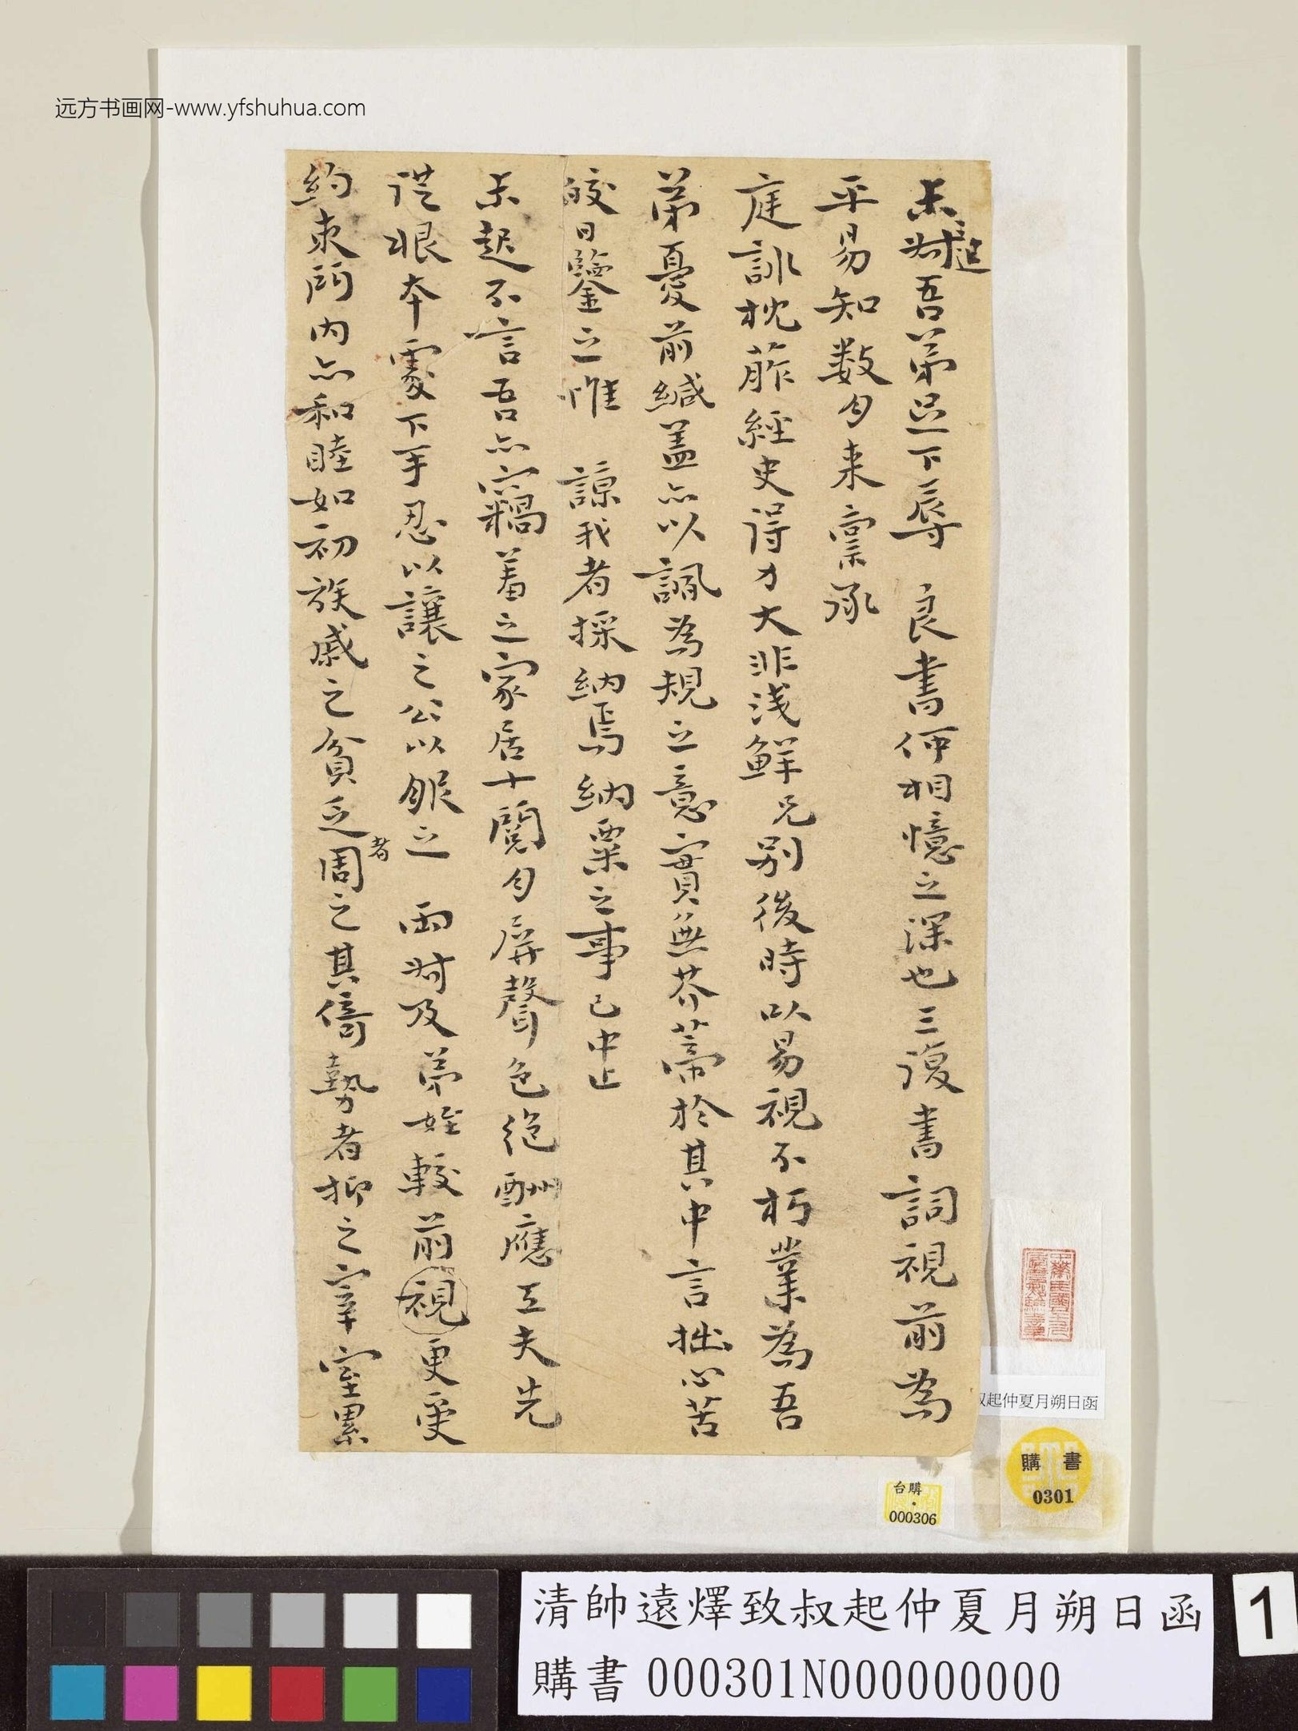 远方书画网-www.yfshuhua.com
尗起吾弟足下辱　良書何相憶之深也三復書詞視前為
平易知數月來稟承
庭訓枕葄經史得力大非淺鮮兄別後時以易視不朽業為吾
弟憂前緘蓋亦以諷為規之意實無芥蒂於其中言拙心苦
皎日鑒之惟　諒我者採納焉納粟之事已中止
尗起不言吾亦竊羞之家居十閱月屏聲色絕酬應工夫先
從根本處下手忍以讓之公以服之　兩
及弟姪較前視更受
約束所內亦和睦如初族戚之貧乏者周之其倚勢者抑之宰室累
叔起仲夏月朔日函
購書
0301
台購
000306
清帥遠燡致叔起仲夏月朔日函
購書 000301N000000000
1